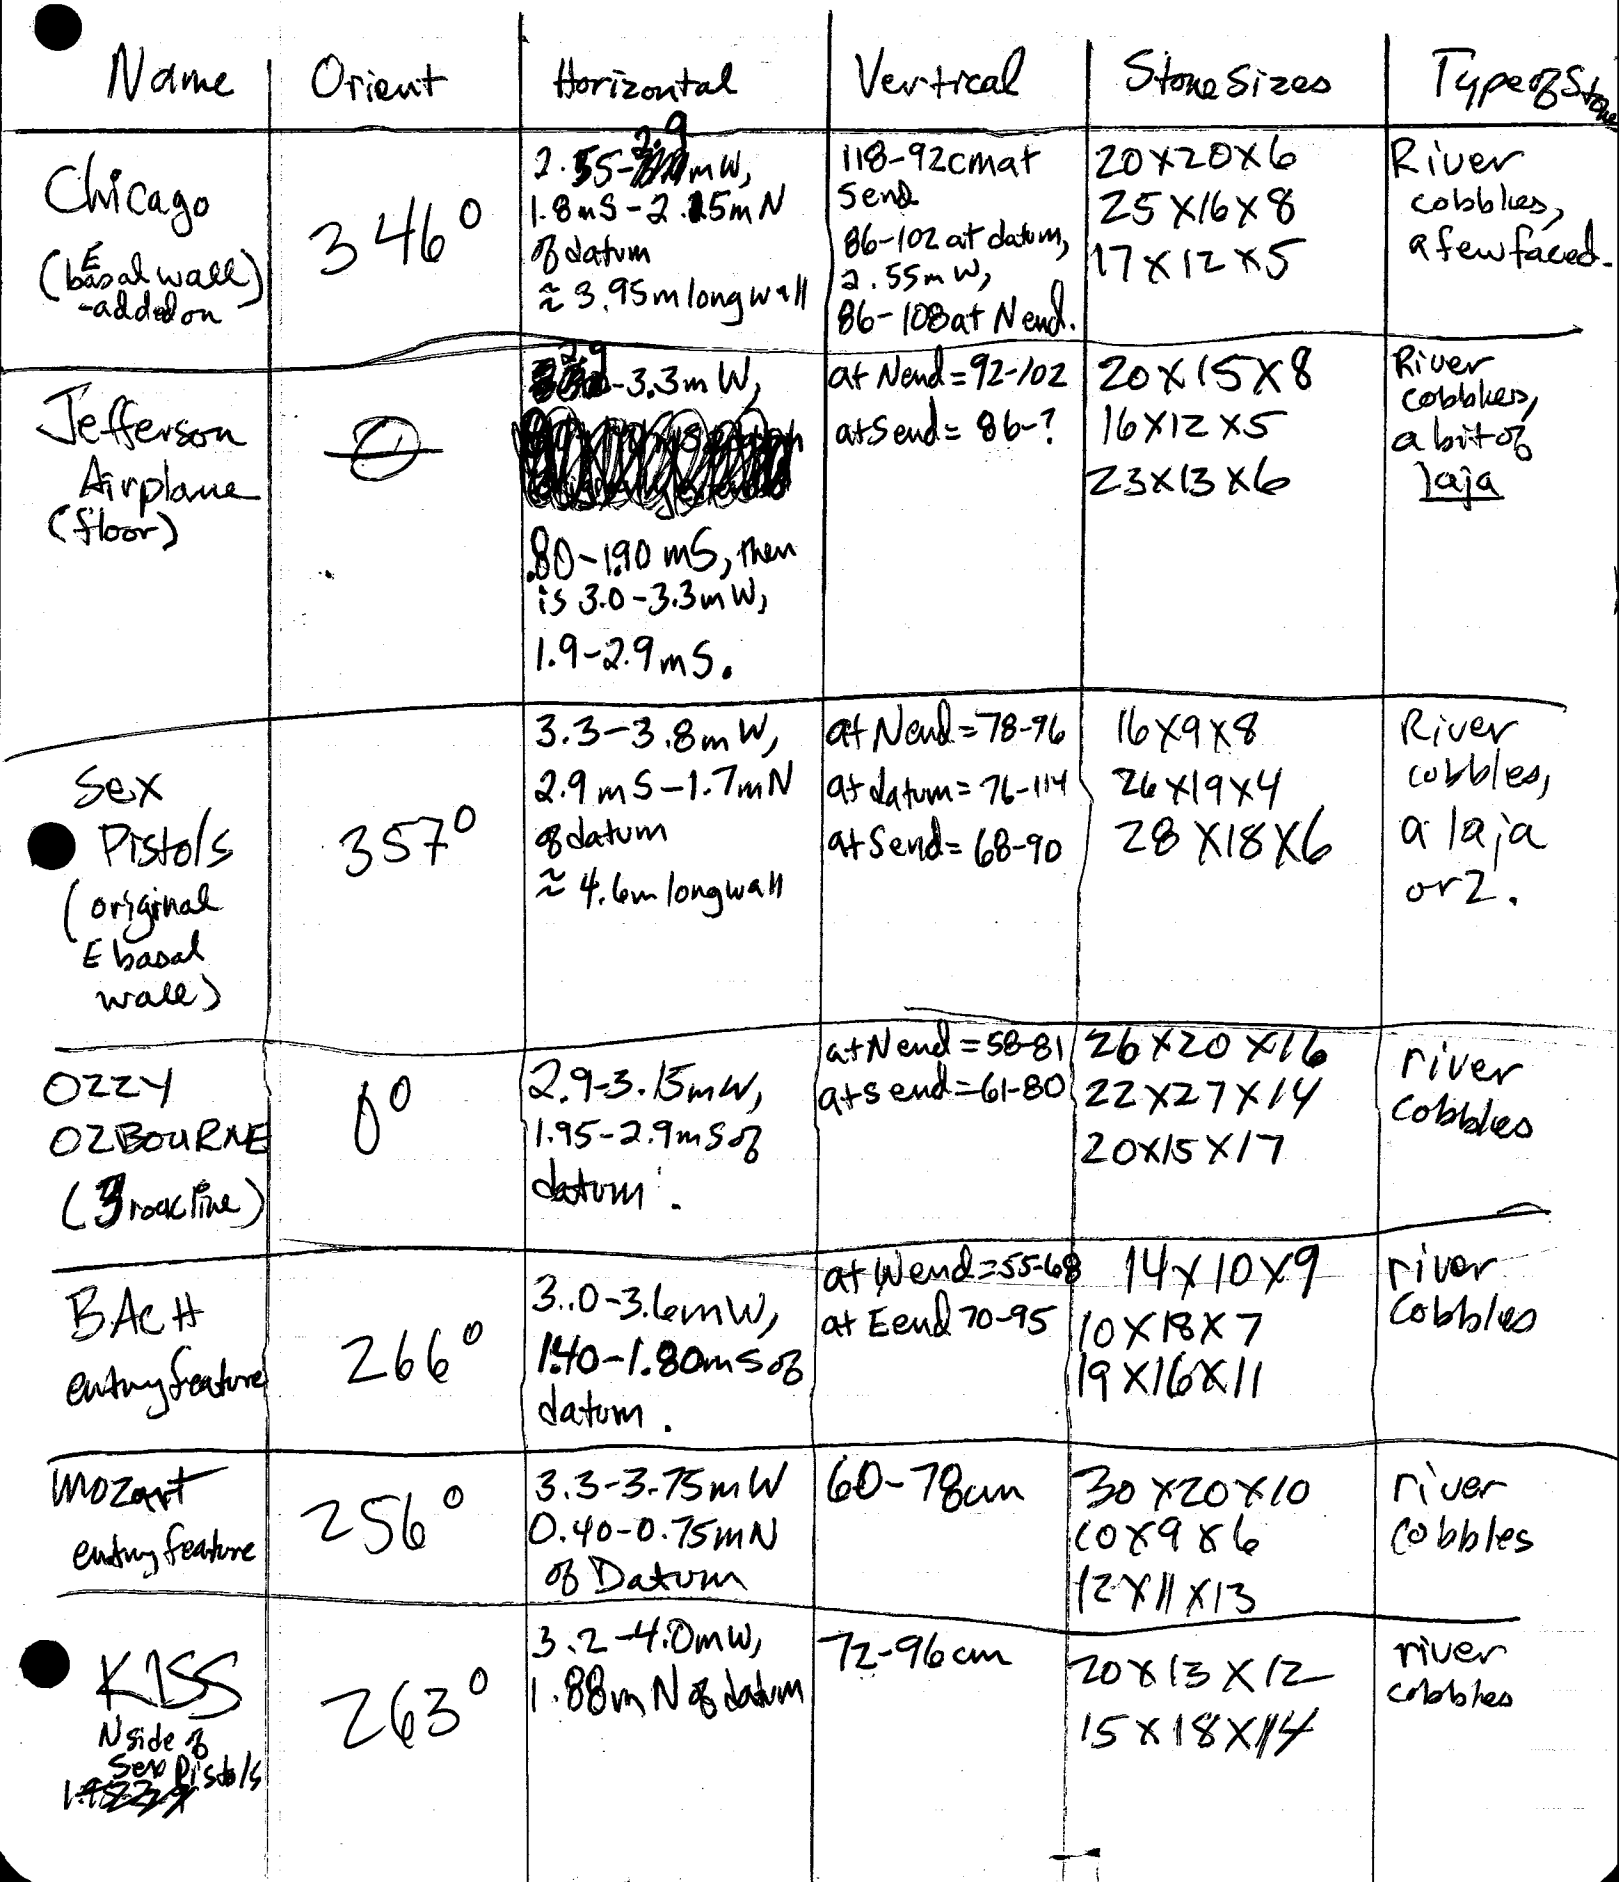 Name Orient Horizontal Vertical Stone Sizes Type of Stone
Chicago
(E basal wall)
-added on
346°
2.55-2.9mW,
1.8mS-2.15mN
of datum
≈ 3.95m long wall
118-92cm at
Send
86-102 at datum,
2.55m W,
86-108 at N end.
20x20x6
25x16x8
17x12x5
River
cobbles,
a few faced.
Jefferson
Airplane
(floor)
2.9-3.3m W,
.80-1.90 mS, then
is 3.0-3.3mW,
1.9-2.9mS.
at Nend=92-102
at Send= 86-?
20x15x8
16x12x5
23x13x6
River
cobbles,
a bit of
laja
Sex
Pistols
(original
E basal
wall)
357°
3.3-3.8mW,
2.9mS-1.7mN
of datum
≈ 4.6m long wall
at Nend=78-96
at datum=76-114
at Send=68-90
16x9x8
26x19x4
28x18x6
River
cobbles,
a laja
or 2.
OZZY
OZBOURNE
(3 rock line)
0°
2.9-3.15mW,
1.95-2.9mS of
datum.
at Nend=58-81
at Send=61-80
26x20x16
22x27x14
20x15x17
river
cobbles
BACH
entry feature
266°
3.0-3.6mW,
1.40-1.80mS of
datum.
at Wend=55-68
at Eend 70-95
14x10x9
10x18x7
19x16x11
river
cobbles
Mozart
entry feature
256°
3.3-3.75mW
0.40-0.75mN
of Datum
60-78cm
30x20x10
10x9x6
12x11x13
river
cobbles
KISS
N side of
Sex Pistols
263°
3.2-4.0mW,
1.88m N of datum
72-96cm
20x13x12
15x18x14
river
cobbles